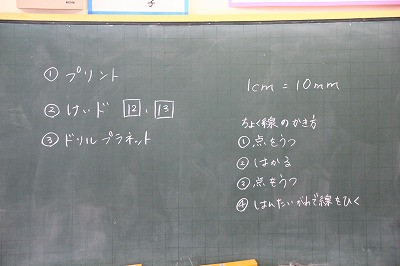 ① プリント
② けいド 12、13
③ ドリルプラネット
1cm = 10mm
ちょく線のかき方
① 点をうつ
② はかる
③ 点をうつ
④ はんたいがわで線をひく